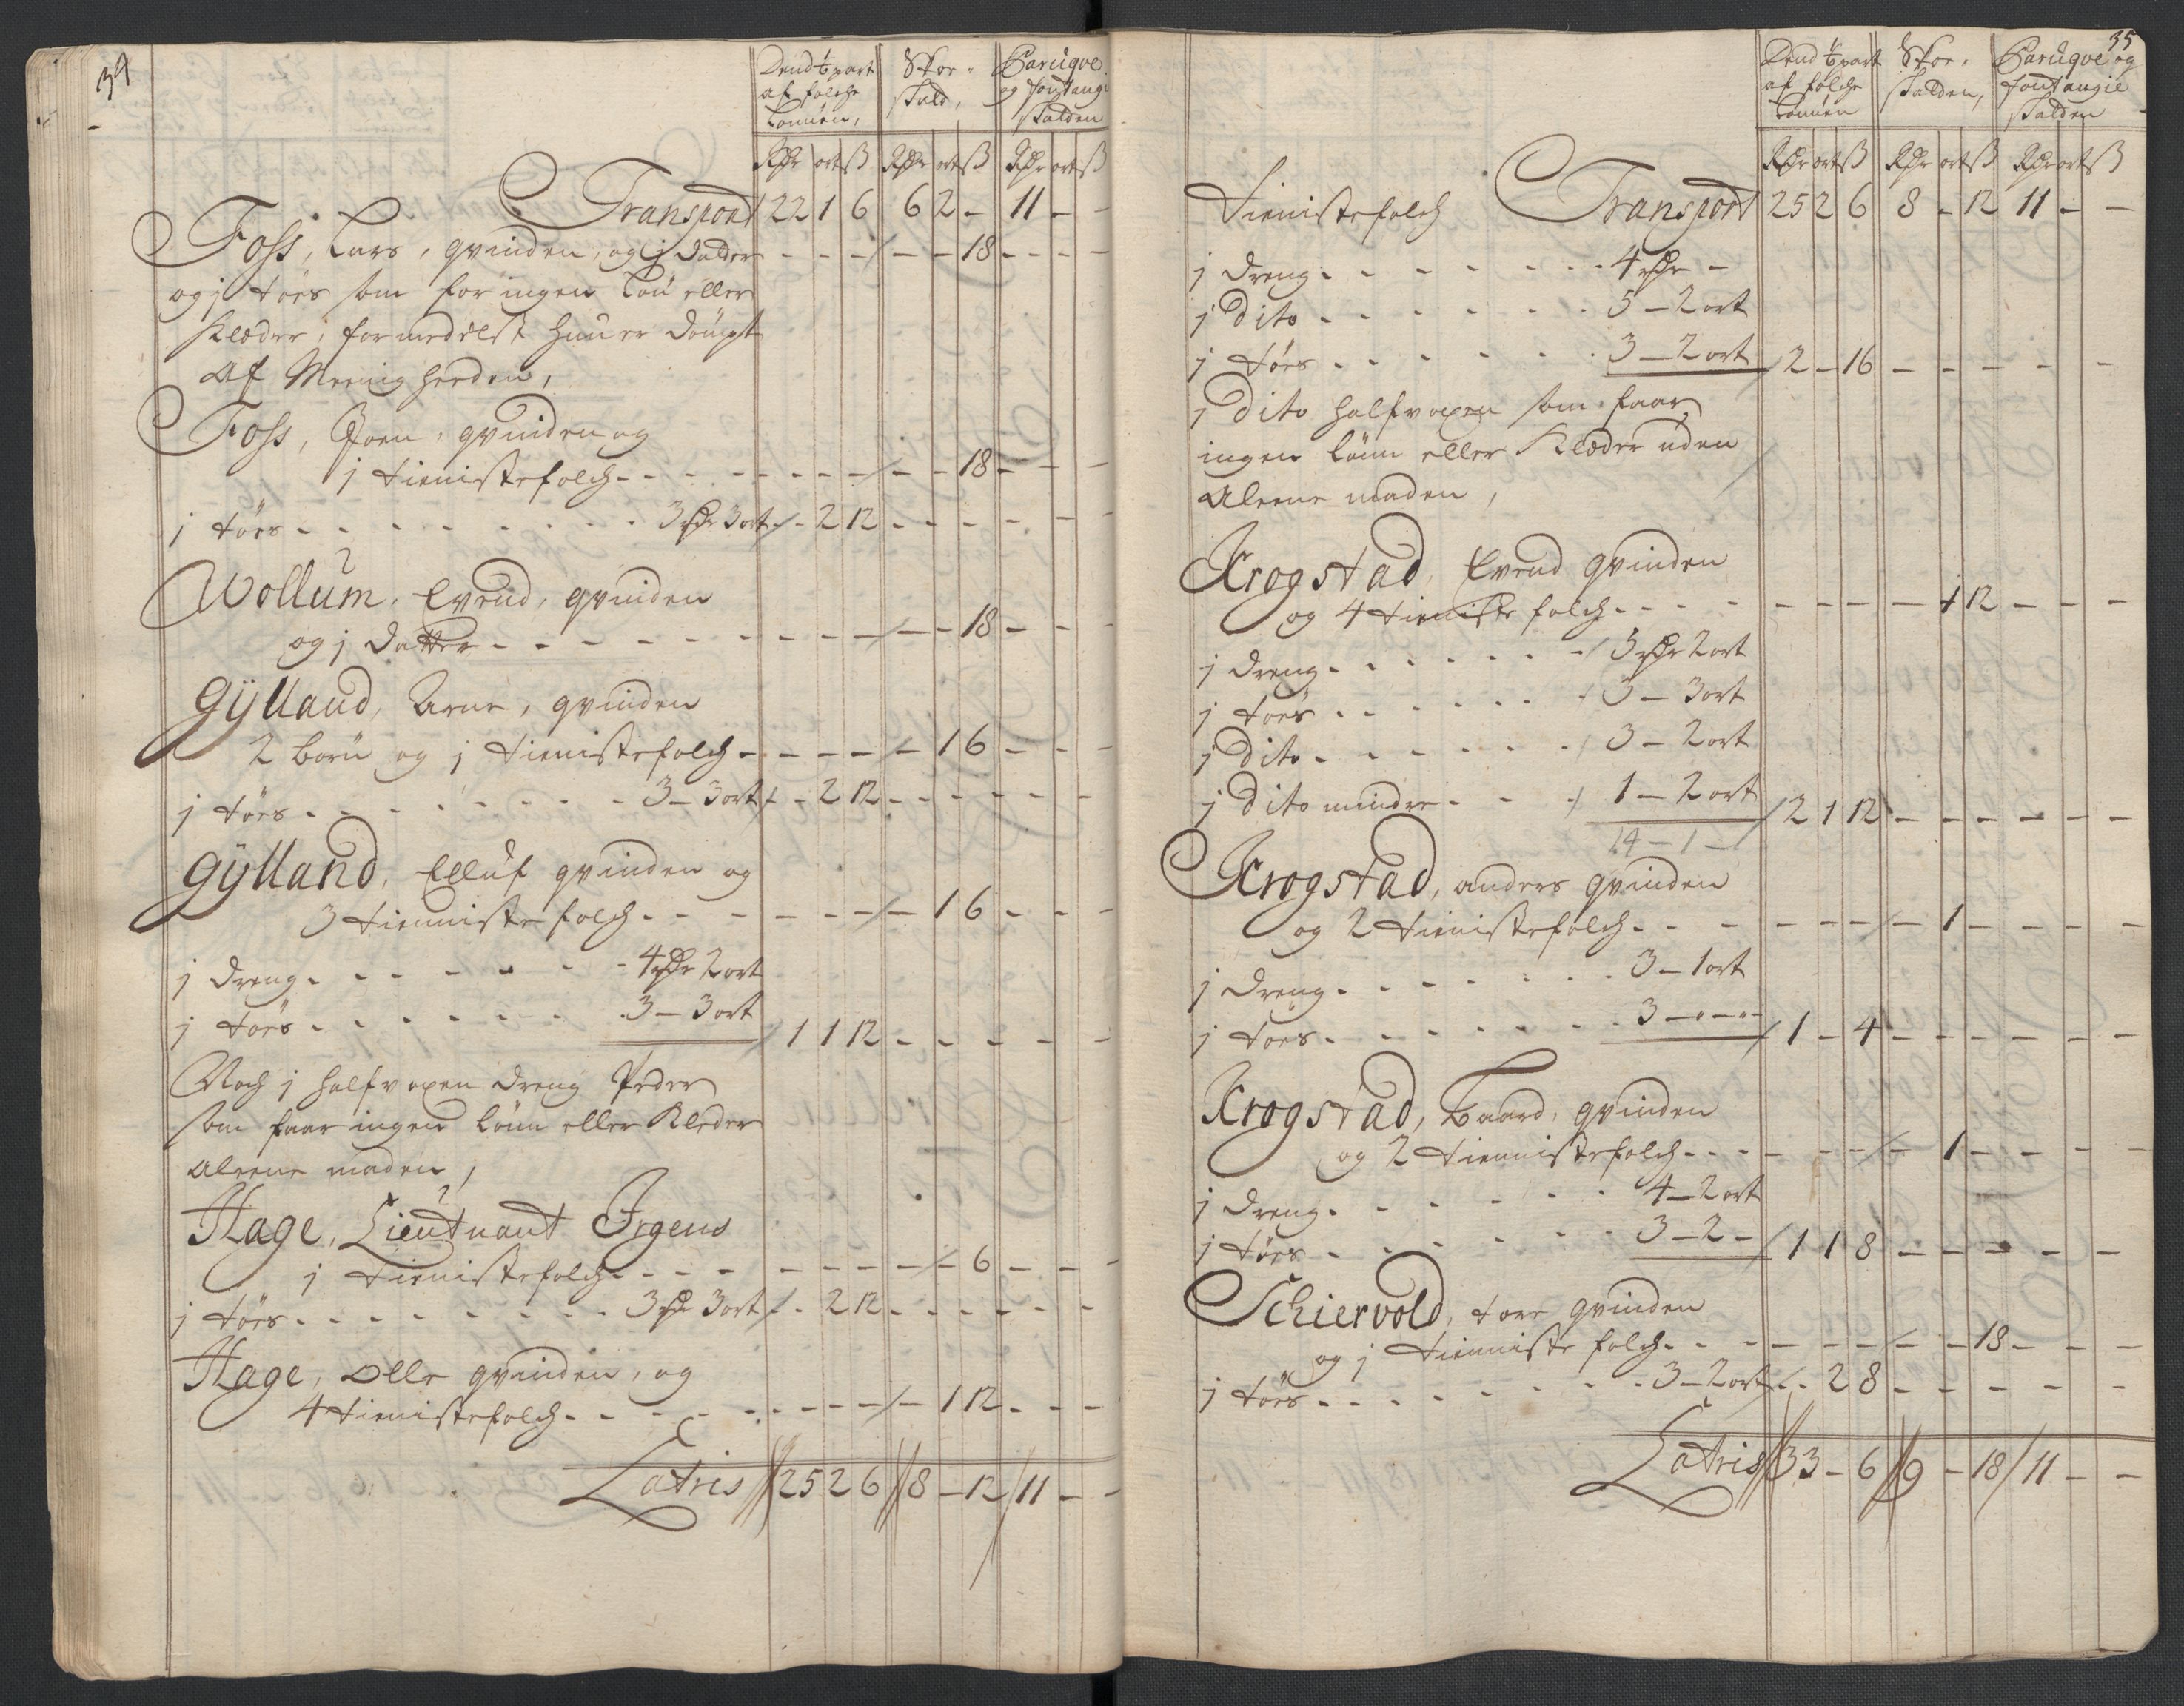 34
Dend 1/6 part af folche Lønnen, Skoe- skatt, Paruqve og fontangie skatten
Rdr ort ß Rdr ort ß Rdr ort ß
Transport 22 1 6 6 2 - 11 - -
Foss, Lars, qvinden, og j datter - - - - - 18 - - -
og j tøes som foer ingen Løn eller
Klæder, formedelst hun er
Af Menigheeden,
Foss, Joen, qvinden og
j tienistefolch - - - - - 18 - - -
j tøes - - - 3 rdr 3 ort - 2 12 - - - - -
Wollum, Evend, qvinden
og j datter - - - - - 18 - - -
Gylland, Arne, qvinden
2 børn og j tienistefolch - - - - 1 6 - - -
j tøes - - - 3 - 3 ort - 2 12 - - - - -
Gylland, Elluf qvinden og
3 tienniste folch - - - - 1 6 - - -
j dreng - - - 4 rdr 2 ort
j tøes - - - 3 - 3 ort 1 1 12 - - - - -
Noch j halfvoxen dreng Peder
som faar ingen Lønn eller Kleder
aleene maden,
Hage, Lieutnant Irgens
j tienistefolch - - - - - 6 - - -
j tøes - - - 3 rdr 3 ort - 2 12 - - - - -
Hage, Olle qvinden, og
4 tienistefolch - - - - 1 12 - - -
Latris 25 2 6 8 - 12 11 - -
35
Dend 1/6 part af folche Lønnen Skoe- skatten, Paruqve og fontangie skatten
Rdr ort ß Rdr ort ß Rdr ort ß
Tienistefolch Transport 25 2 6 8 - 12 11 - -
j dreng - - - 4 rdr -
j dito - - - 5 - 2 ort
j tøes - - - 3 - 2 ort 2 - 16 - - - - -
j dito halfvoxen som faar
ingen Lønn eller Klæder uden
aleene maden,
Krogstad, Evend qvinden
og 4 tieniste folch - - - - 1 12 - - -
j dreng - - - 3 rdr 2 ort
j tøes - - - 3 - 3 ort
j dito - - - 3 - 2 ort
j dito mindre - - - 1 - 2 ort 2 1 12 - - - - -
14 - 1 -
Krogstad, anders qvinden
og 2 tienistefolch - - - - 1 - - - -
j dreng - - - 3 - 1 ort
j tøes - - - 3 - - - 1 - 4 - - - - -
Krogstad, Baard, qvinden
og 2 tiennistefolch - - - - 1 - - - -
j dreng - - - 4 - 2 ort
j tøes - - - 3 - 2 - 1 1 8 - - - - -
Schiervold, tore qvinden
og j tienniste folch - - - - - 18 - - -
j tøes - - - 3 - 2 ort - 2 8 - - - - -
Latris 33 - 6 9 - 18 11 - -